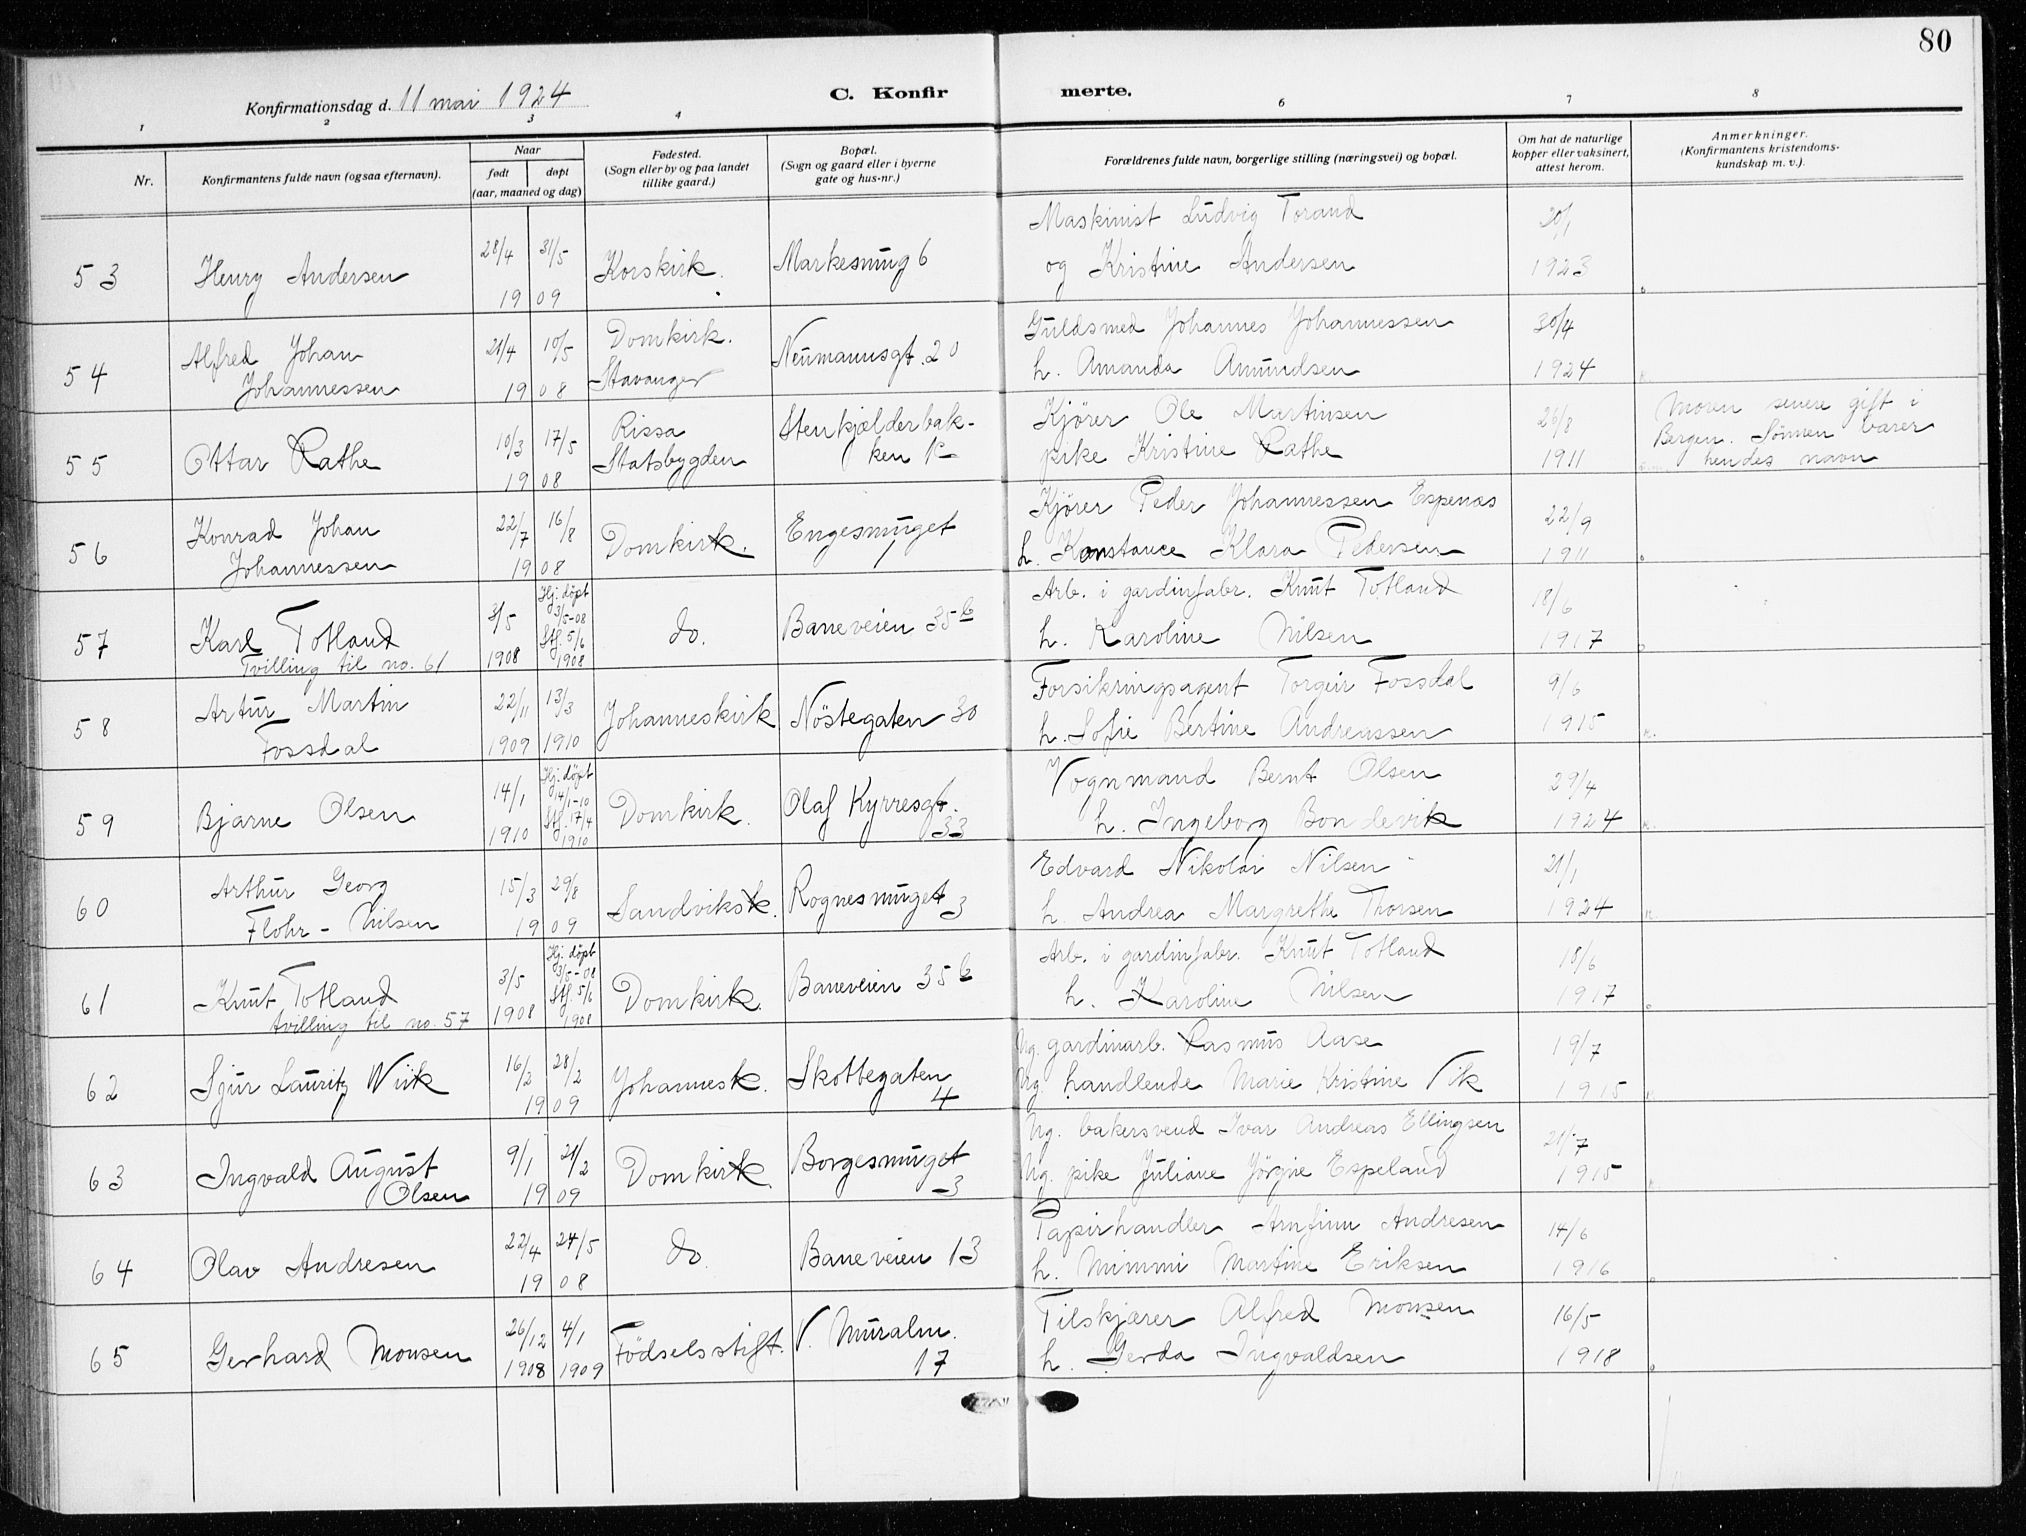 80
Konfirmationsdag d. 11 mai 1924
C. Konfirmerte.
1 2 3 4 6 7 8
Nr.
Konfirmantens fulde navn (ogsaa efternavn).
Naar
født døpt
(aar, maaned og dag)
Fødested.
(Sogn eller by og paa landet
tillike gaard.)
Bopæl.
(Sogn og gaard eller i byerne
gate og hus-nr.)
Forældrenes fulde navn, borgerlige stilling (næringsvei) og bopæl.
Om hat de naturlige
kopper eller vaksinert,
attest herom.
Anmerkninger.
(Konfirmantens kristendoms-
kundskap m. v.).
53 Henry Andersen
28/4 31/5
1909
Korskirk.
Markesmug 6
Maskinist Ludvig Torand
og Kristine Andersen
20/1
1923
54 Alfred Johan
Johannessen
21/4 10/5
1908
Domkirk.
Stavanger
Neumannsgt. 20
Guldsmed Johannes Johannessen
h. Amanda Amundsen
30/4
1924
55 Ottar Rathe
10/3 17/5
1908
Rissa
Statsbygden
Stenkjælderbak-
ken
Kjører Ole Martinsen
pike Kristine Rathe
26/8
1911
Moren senere gift i
Bergen. Sønnen bærer
hendes navn
56 Konrad Johan
Johannessen
22/7 16/8
1908
Domkirk.
Engesmuget
1
Kjører Peder Johannessen Espenæs
h. Konstance Klara Pedersen
22/9
1911
57 Karl Totland
Tvilling til no. 61
3/5
1908
Hj. døpt
3/5-08
Stf. 5/6
1908
do.
Baneveien 35 b
Arb. i gardinfabr. Knut Totland
h. Karoline Nilsen
18/6
1917
58 Artur Martin
Fossdal
22/11 13/3
1909 1910
Johanneskirk
Nöstegaten 30
Forsikringsagent Torgeir Fossdal
h. Sofie Bertine Andreassen
9/6
1915
59 Bjarne Olsen
14/1
1910
Hj. döpt
14/1-10
Stf. 17/4
1910
Domkirk.
Olaf Kyrresgt.
33
Vognmand Bernt Olsen
h. Ingeborg Bondevik
29/4
1924
60 Arthur Georg
Flohr-Nilsen
15/3 29/8
1909
Sandviksk.
Rognesmuget
3
Edvard Nikolai Nilsen
h. Andrea Margrethe Thorsen
21/1
1924
61 Knut Totland
tvilling til no. 57
3/5
1908
Hj. döpt
3/5-08
Stf. 5/6
1908
Domkirk.
Baneveien 35 b
Arb. i gardinfabr. Knut Totland
h. Karoline Nilsen
18/6
1917
62 Sjur Lauritz Wiik
16/2 28/2
1909
Johannesk.
Skottegaten
4
Ug. gardinarb. Rasmus Aase
Ug. handlende Marie Kristine Vik
19/7
1915
63 Ingvald August
Olsen
9/1 21/2
1909
Domkirk.
Borgesmuget
3
Ug. bakersvend Ivar Andreas Ellingsen
Ug. pike Juliane Jörgine Espeland
21/7
1915
64 Olav Andresen
22/4 24/5
1908
do.
Baneveien 13
Papirhandler Arnfinn Andresen
h. Mimmi Martine Eriksen
14/6
1916
65 Gerhard Monsen
26/12 4/1
1908 1909
Födselsstift.
V. Muralm.
17
Tilskjærer Alfred Monsen
h. Gerda Ingvaldsen
16/5
1918